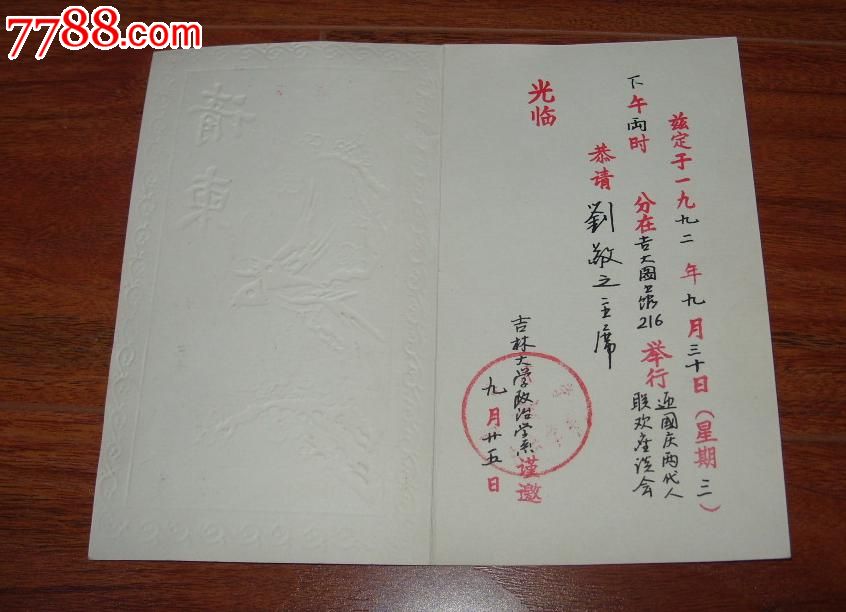 7788.com
请柬
兹定于一九九二年九月三十日(星期三)
下午两时 分在吉大图书馆216举行迎國庆两代人
联欢座谈会
恭请劉敬之主席
光临
吉林大学政治学系谨邀
九月廿五日